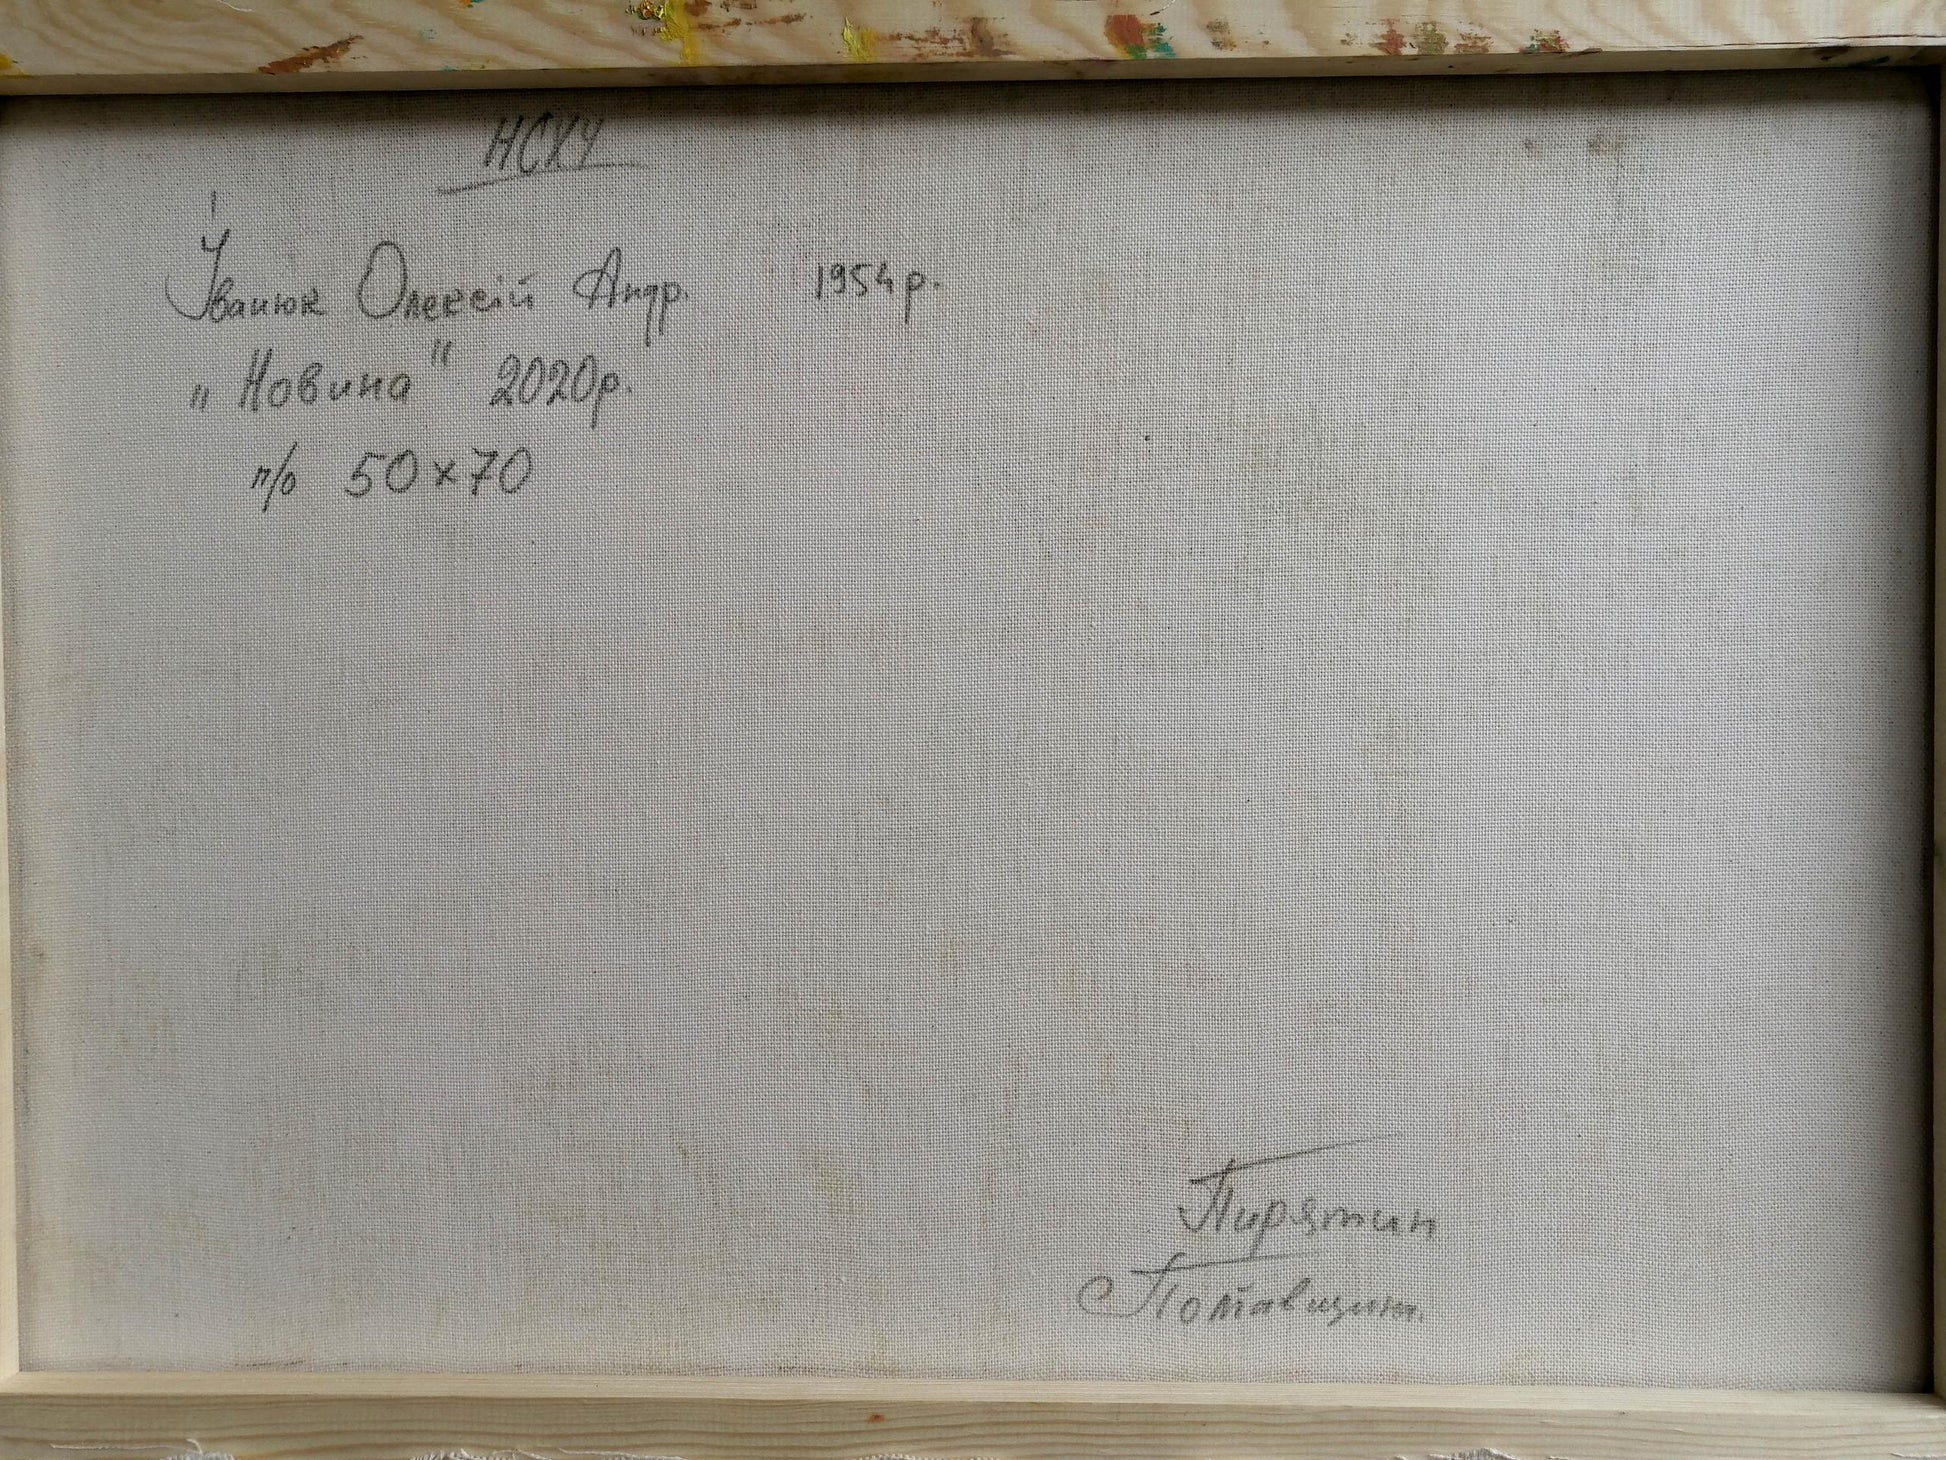 НСХУ
Іванюк Олексій Андр. 1954 р.
„Новина" 2020р.
п/о 50x70
Пирятин
с Полтавщин.